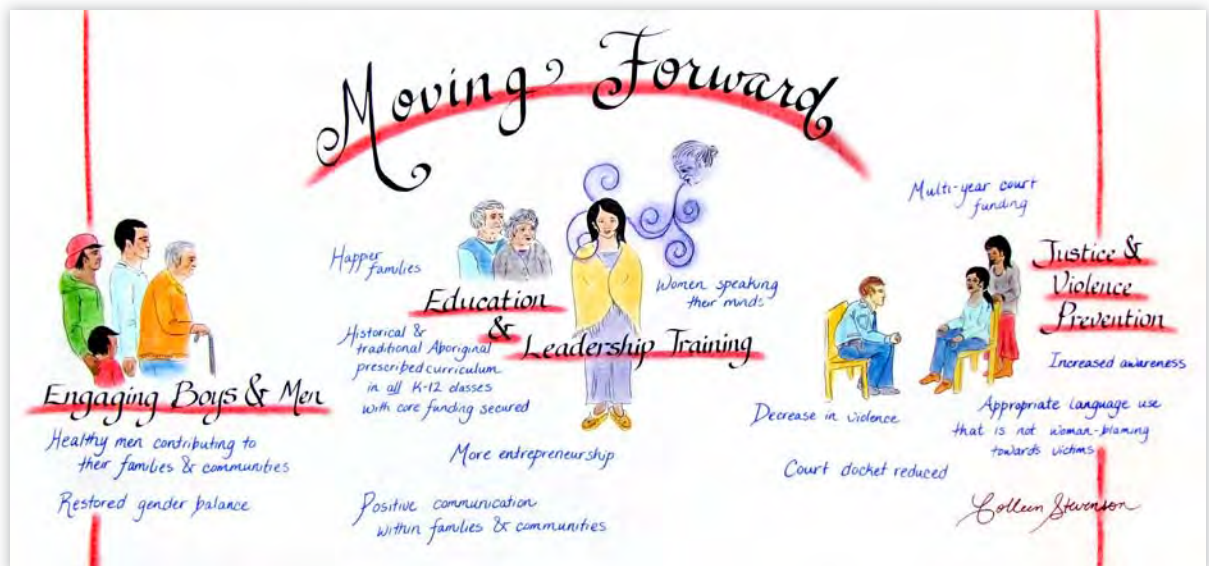 Moving Forward
Engaging Boys & Men
Healthy men contributing to
their families & communities
Restored gender balance
Happer
families
Education
&
Leadership Training
Women speaking
their minds
Historical &
traditional Aboriginal
prescribed curriculum
in all K-12 classes
with core funding secured
More entrepreneurship
Positive communication
within families & communities
Multi-year court
funding
Justice &
Violence
Prevention
Increased awareness
Decrease in violence
Appropriate language use
that is not woman-blaming
towards victims
Court docket reduced
Colleen Stevenson